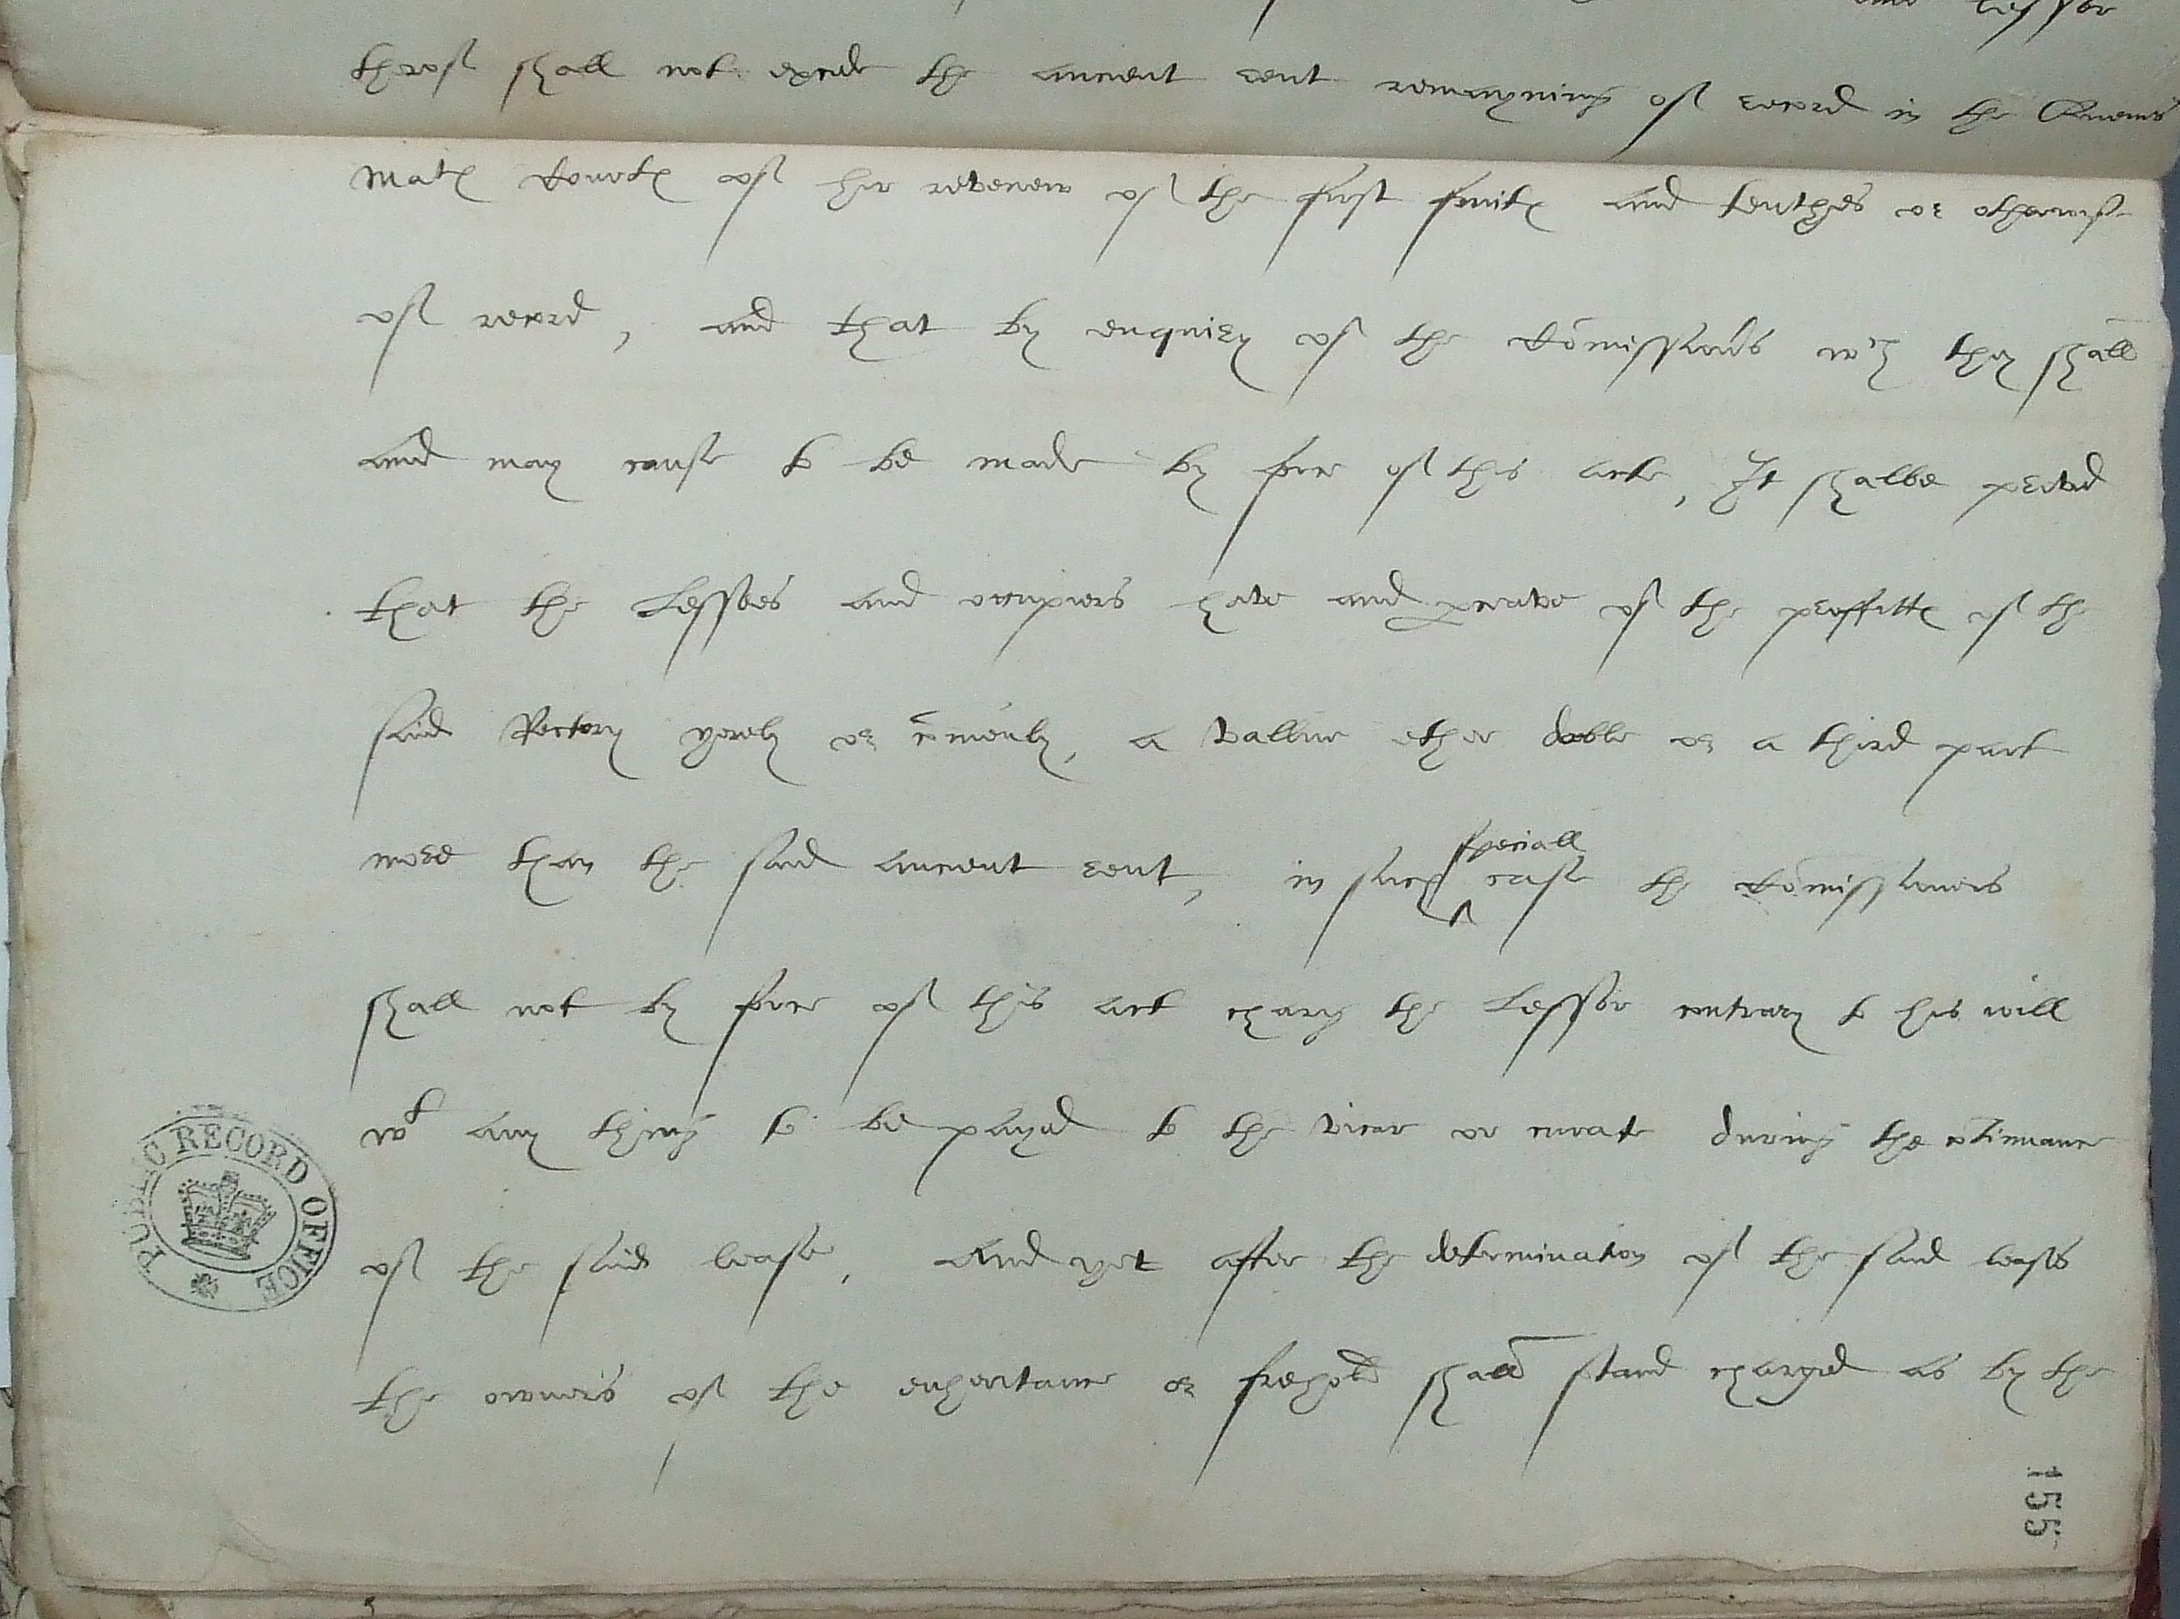 Lessor
therof shall not excede the auncient rent remayning of record in the Quenes
Mates Courtes of her revenew of the first fruites and tenthes or otherwise
of record, and that by enquiry of the Comissioners wch they shall
and may cause to be made by force of this acte, It shalbe proved
that the Lessees and occupiers have and perceave of the proffittes of the
said Rectory yerely or comenly, a vallue ether doble or a third part
more than the said auncient rent, in such speciall case the Comissioners
shall not by force of this act charg the Lessor contrary to his will
wt any thing to be payed to the vicar or curate during the cotinuance
of the said lease, And yet after the determination of the said leases
the owners of the enheritance or freehold shall stand charged as by the
PUBLIC RECORD OFFICE
155